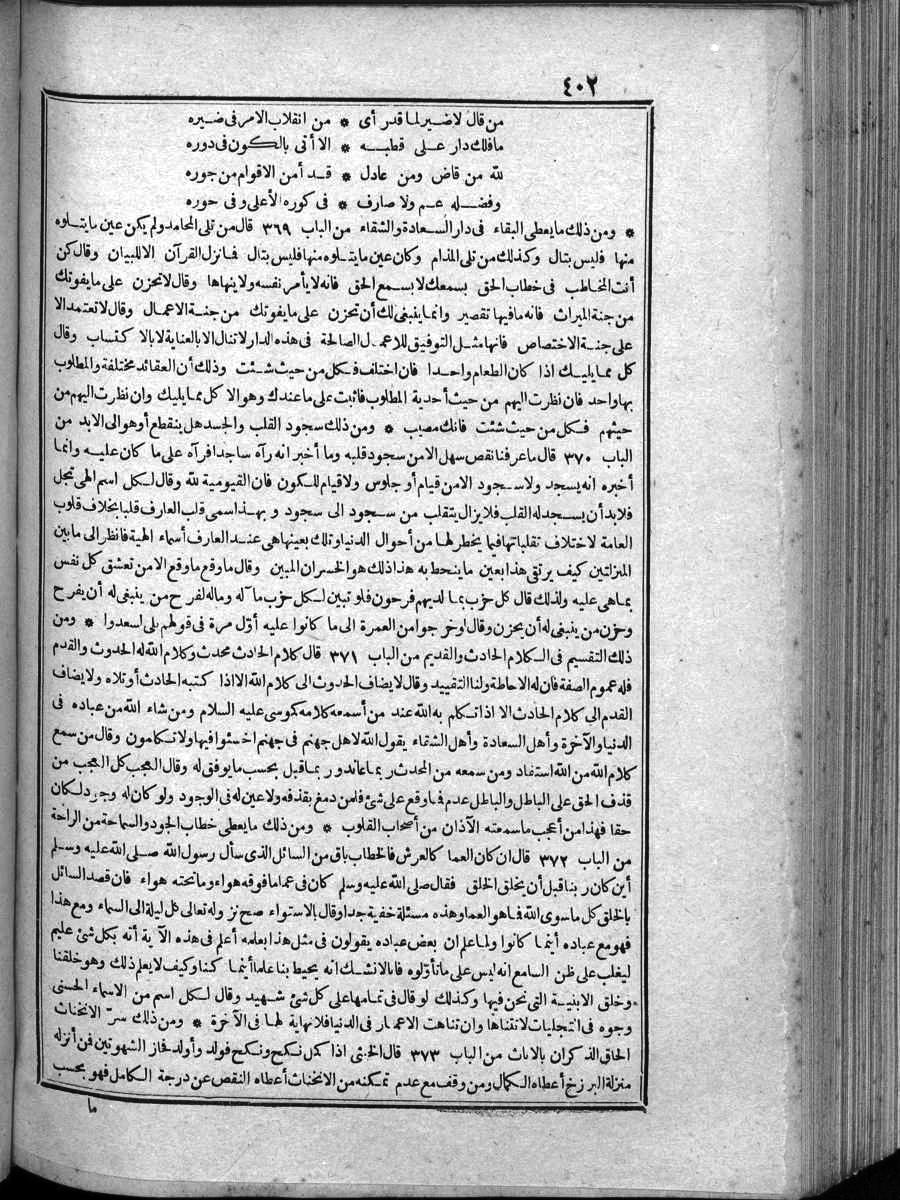 ٤٠٢
من قال لا ضير لما قد رأى * من انقلاب الامر فى ضيره
ما فلك دار على قطبه * الا أتى بالكون فى دوره
لله من قاض ومن عادل * قد أمن الاقوام من جوره
وفضله عم ولا صارف * فى كوره الأعلى وفى حوره
* ومن ذلك ما يعطى البقاء فى دار السعادة والشقاء من الباب ٣٦٩ قال من تلى المحامد ولم يكن عين ما يتلوه
منها فليس بتال وكذلك من تلى المذام وكان عين ما يتلوه منها فليس بتال فما نزل القرآن الا للبيان وقال كن
أنت المخاطب فى خطاب الحق بسمعك لا بسمع الحق فانه لا يأمر نفسه ولا ينهاها وقال لا تحزن على ما يفوتك
من جنة الميراث فانه ما فيها تقصير وانما ينبغى لك أن تحزن على ما يفوتك من جنة الاعمال وقال لا تعتمد الا
على جنة الاختصاص فانها مثل التوفيق للاعمال الصالحة فى هذه الدار لا تنال الا بالعناية لا بالا كتساب وقال
كل مما يليك اذا كان الطعام واحدا فان اختلف فكل من حيث شئت وذلك أن العقائد مختلفة والمطلوب
بها واحد فان نظرت اليهم من حيث أحدية المطلوب فاثبت على ما عندك وهو الا كل مما يليك وان نظرت اليهم من
حيثهم فكل من حيث شئت فانك مصيب * ومن ذلك سجود القلب والجسد هل ينقطع أو هو الى الابد من
الباب ٣٧٠ قال ما عرفنا نقص سهل الا من سجود قلبه وما أخبر انه رآه ساجدا فرآه على ما كان عليه وانما
أخبره انه يسجد ولا سجود الا من قيام أو جلوس ولا قيام للكون فان القيومية لله وقال لكل اسم الهى تجل
فلا بد أن يسجد له القلب فلا يزال يتقلب من سجود الى سجود وبهذا سمى قلب العارف قلبا بخلاف قلوب
العامة لاختلاف تقلباتها فيما يخطر لها من أحوال الدنيا وتلك بعينها هى عند العارف أسماء الهية فانظر الى ما بين
المنزلتين كيف يرتقى هذا بعين ما ينحط به هذا ذلك هو الخسران المبين وقال ما وقع ما وقع الا من تعشق كل نفس
بما هى عليه ولذلك قال كل حزب بما لديهم فرحون فلو تبين لكل حزب مآله وماله لفرح من ينبغى له أن يفرح
وحزن من ينبغى له أن يحزن وقال لو خرجوا من العمرة الى ما كانوا عليه أول مرة فى قولهم بلى لسعدوا * ومن
ذلك التقسيم فى الكلام الحادث والقديم من الباب ٣٧١ قال كلام الحادث محدث وكلام الله له الحدوث والقدم
فله عموم الصفة فان له الاحاطة ولنا التقييد وقال لا يضاف الحدوث الى كلام الله الا اذا كتبه الحادث أو تلاه ولا يضاف
القدم الى كلام الحادث الا اذا تكلم به الله عند من أسمعه كلامه كموسى عليه السلام ومن شاء الله من عباده فى
الدنيا والآخرة وأهل السعادة وأهل الشقاء يقول الله لاهل جهنم فى جهنم اخسئوا فيها ولا تكلمون وقال من سمع
كلام الله من الله استفاد ومن سمعه من المحدث ربما عاند وربما قبل بحسب ما يوفق له وقال العجب كل العجب من
قذف الحق على الباطل والباطل عدم فما وقع على شئ فلمن دمغ بقذفه ولا عين له فى الوجود ولو كان له وجود لكان
حقا فهذا من أعجب ما سمعته الآذان من أصحاب القلوب * ومن ذلك ما يعطى خطاب الجود والسماحة من الراحة
من الباب ٣٧٢ قال ان كان العما كالعرش فالخطاب باق من السائل الذى سأل رسول الله صلى الله عليه وسلم
أين كان ربنا قبل أن يخلق الخلق فقال صلى الله عليه وسلم كان فى عما ما فوقه هواء وما تحته هواء فان قصد السائل
بالخلق كل ما سوى الله فما هو العما وهذه مسئلة خفية جدا وقال بالاستواء صح نزوله تعالى كل ليلة الى السماء ومع هذا
فهو مع عباده أينما كانوا ولما علم ان بعض عباده يقولون فى مثل هذا بعلمه أعلم فى هذه الآية أنه بكل شئ عليم
ليغلب على ظن السامع انه ليس على ما تأولوه فانا لا نشك انه يحيط بنا علما أينما كنا وكيف لا يعلم ذلك وهو خلقنا
وخلق الابنية التى نحن فيها وكذلك لو قال فى تمامها على كل شئ شهيد وقال لكل اسم من الاسماء الحسنى
وجوه فى التجليات لا تتناها وان تناهت الاعمار فى الدنيا فلا نهاية لها فى الآخرة * ومن ذلك سر الانخناث
الحاق الذكران بالاناث من الباب ٣٧٣ قال الخنثى اذا كمل نكح ونكح فولد وأولد فحاز الشهوتين فمن أنزله
منزلة البرزخ أعطاه الكمال ومن وقف مع عدم تمكنه من الانخناث أعطاه النقص عن درجة الكامل فهو بحسب
ما